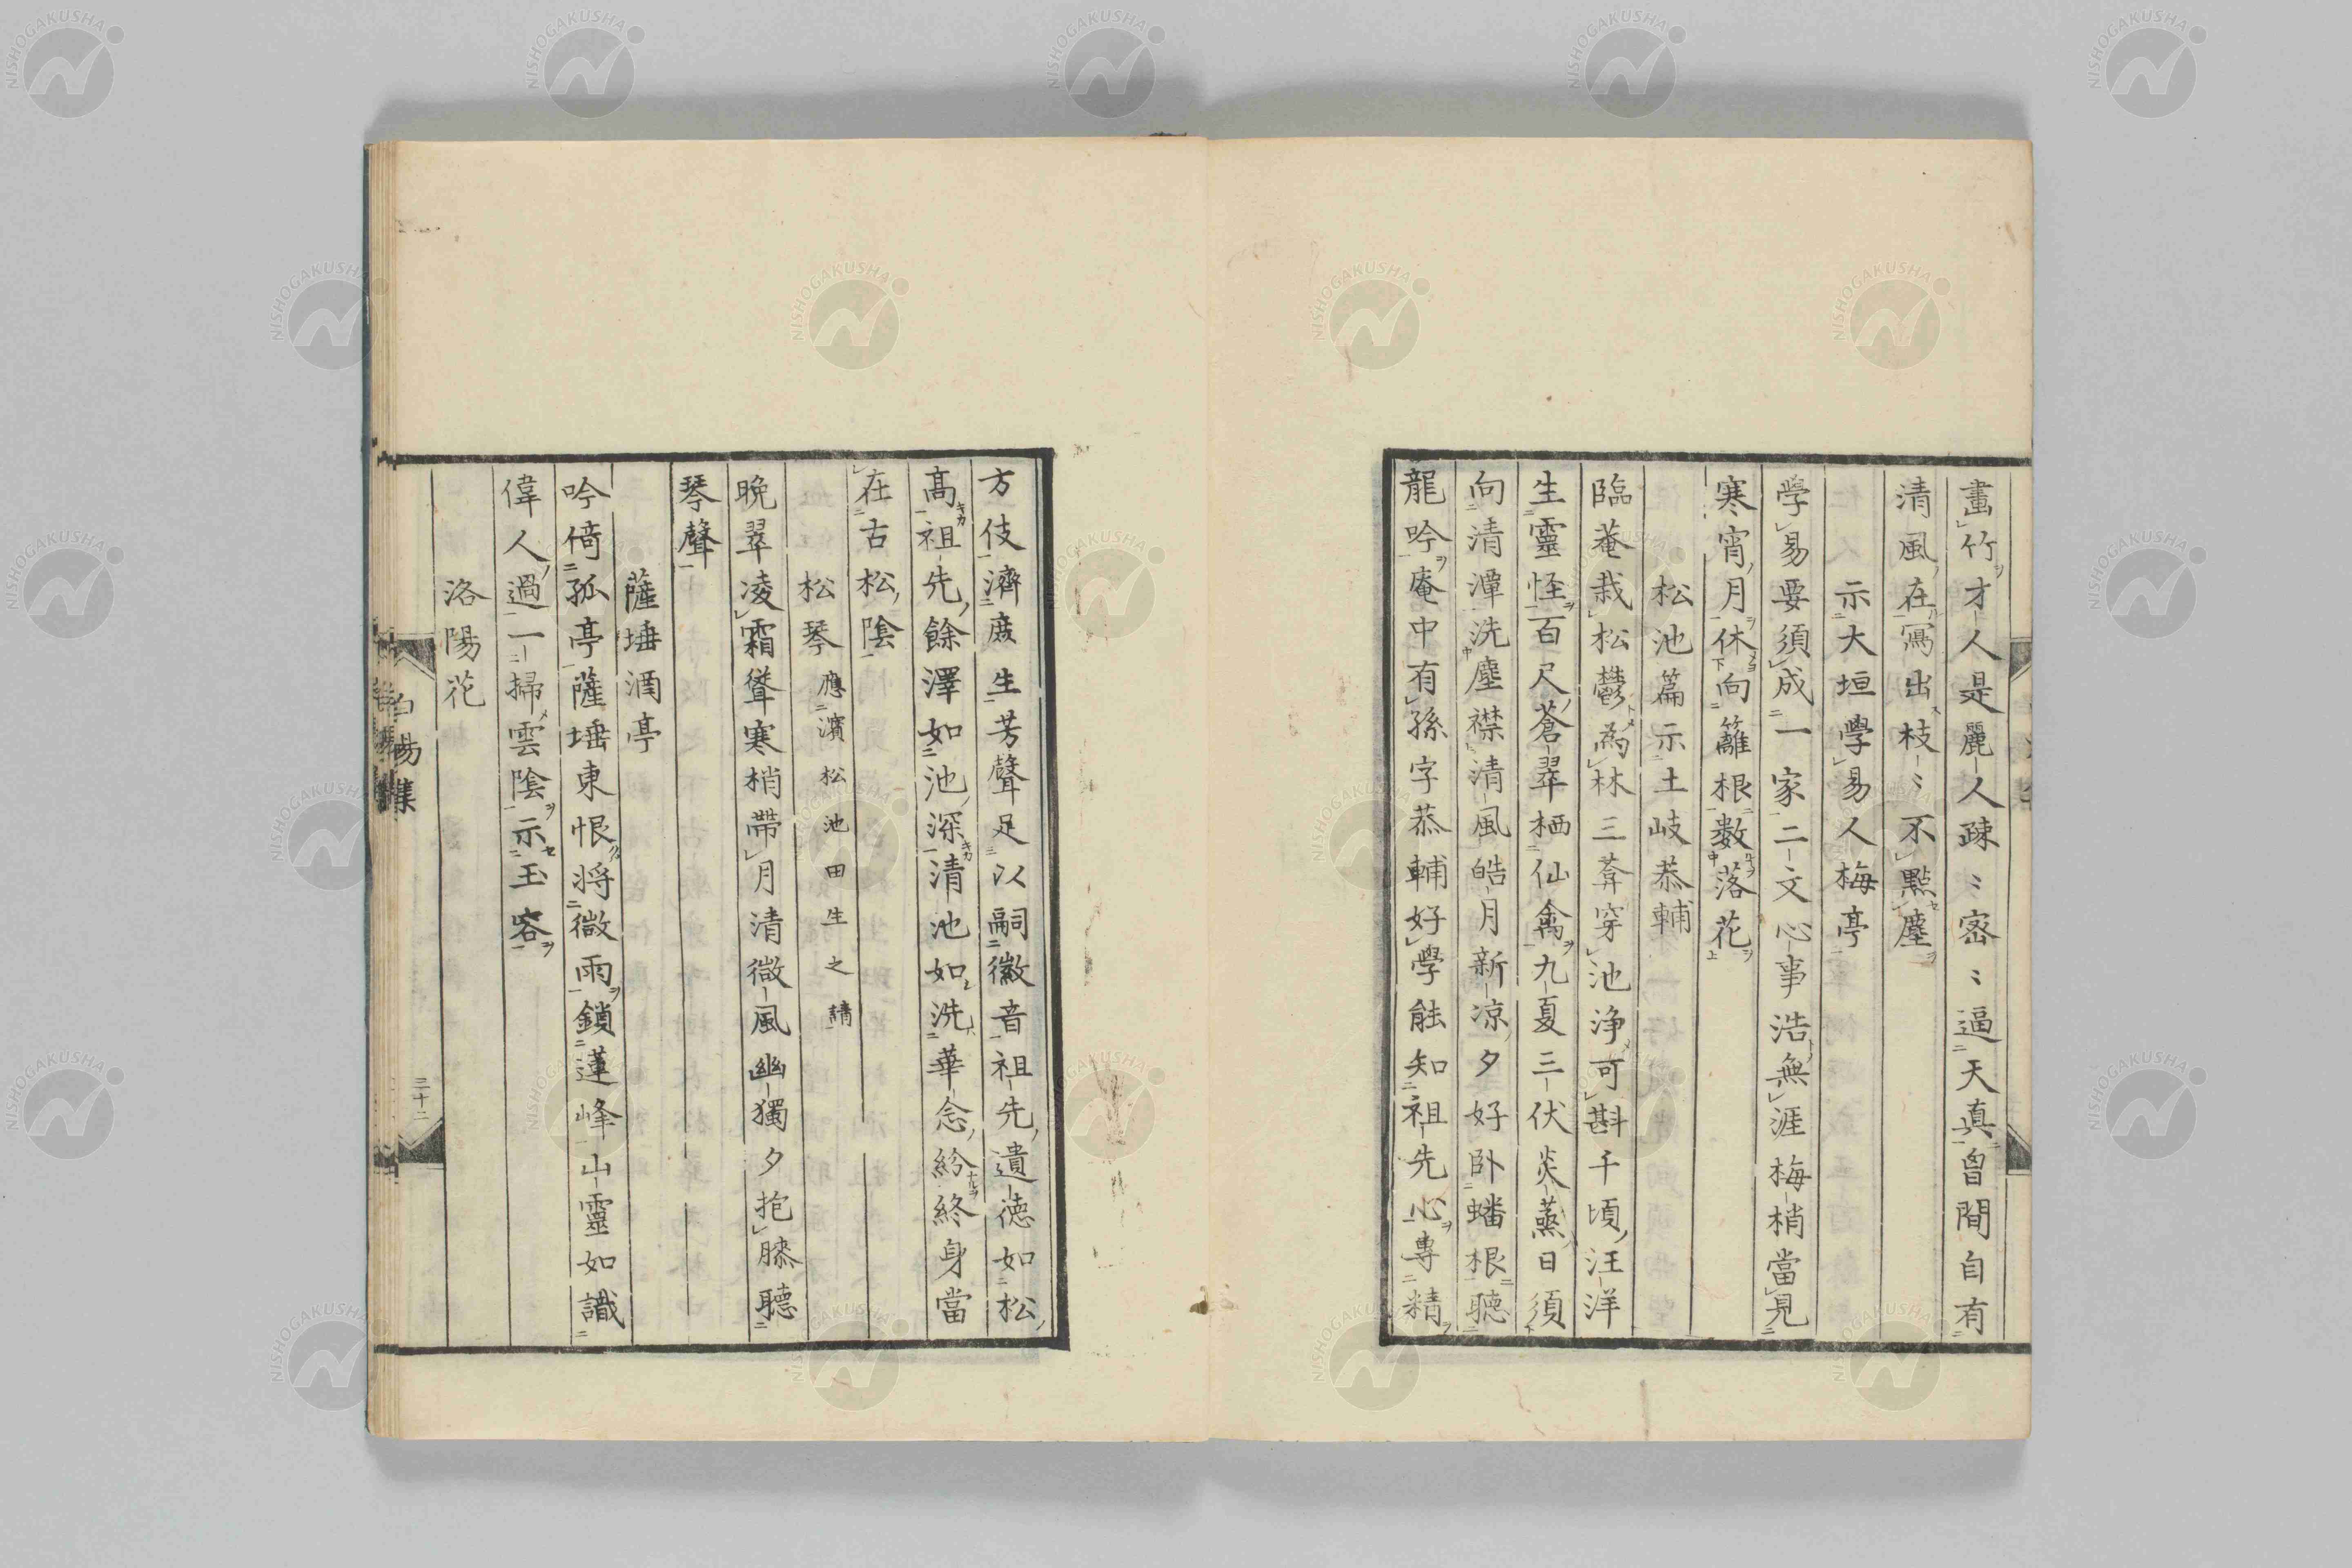 畫竹才人是麗人疎〻密〻逼天真曾間自有
清風在寫出枝〻不點塵
示大垣學易人梅亭
學易要須成一家二文心事浩無涯梅梢當見
寒宵月休向籬根數落花
松池篇示土岐恭輔
臨菴栽松鬱為林三葊穿池浄可斟千頃汪洋
生靈怪百尺蒼翠栖仙禽九夏三伏炎蒸日須
向清潭洗塵襟清風皓月新涼夕好卧蟠根聽
龍吟庵中有孫字恭輔好學能知祖先心專精
方伎濟廢生芳聲足以嗣徽音祖先遺德如松
高祖先餘澤如池深清池如洗華念紛終身當
在古松陰
松琴應濱松池田生之請
晩翠凌霜聳寒梢帶月清微風幽獨夕抱膝聽
琴聲
薩埵酒亭
吟倚孤亭薩埵東恨將微雨鎖蓮峰山靈如識
偉人過一掃雲陰示玉容
洛陽花
三十二